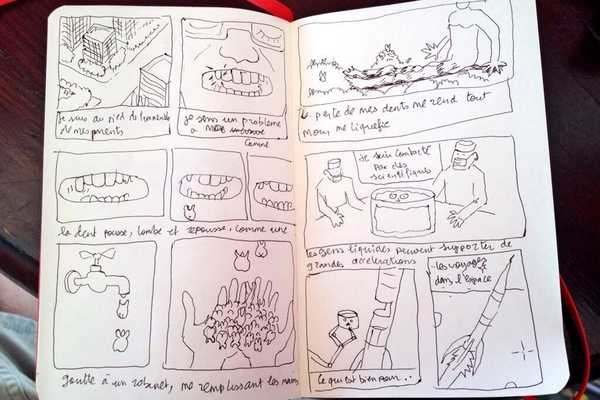 Je suis au pied de l'immeuble
de mes parents
je sens un problème
à ma
Canine
la dent pousse, tombe et repousse, comme une
goutte à un robinet, me remplissant les mains
La perte de mes dents me rend tout
mou, me liquéfie
Je suis contacté
par des
scientifiques
les gens liquides peuvent supporter de
grandes accélérations
Ce qui est bien pour..
les voyages
dans l'espace